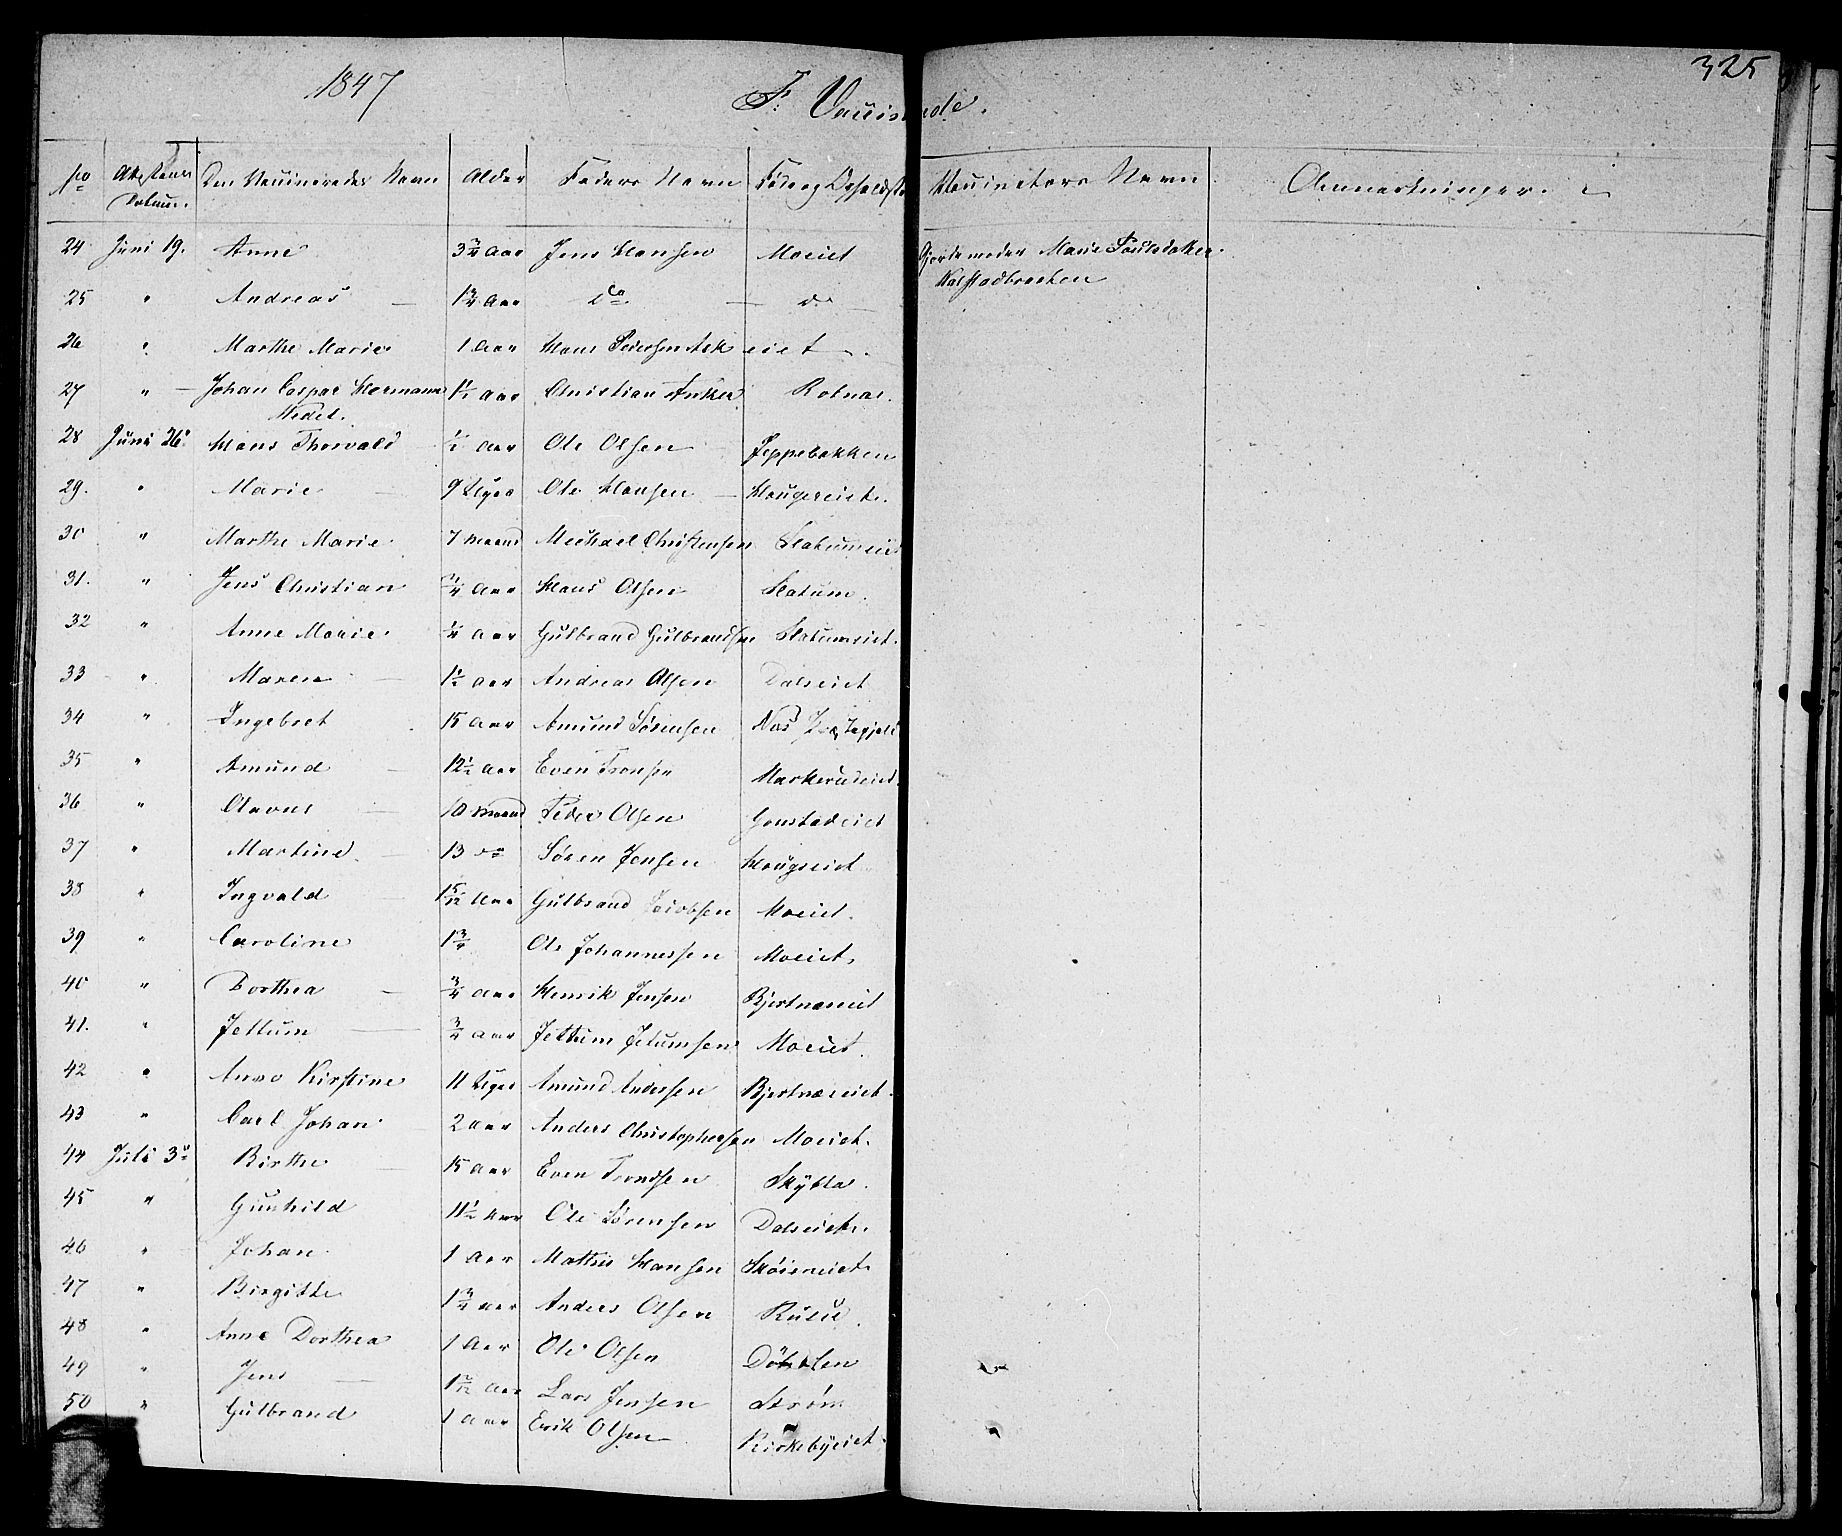 1847
F. Vaccinerede.
325
No Attestens Datum. Den Vaccineredes Navn Alder Faders Navn Føde og Opholdsst Vaccineters Navn Anmærkninger.
24 Juni 19. Anne 3 3/4 Aar Jens Hansen Moeiet Gjordemoder Marie Poulsdatter
Kalstadbraaten
25 " Andreas 1 3/4 Aar do d.
26 " Marthe Marie 1 Aar Hans Pedersen Ask eiet
27 " Johan Caspar Hermann 1 1/2 Aar Christian Anker Rotnæs.
Wedel.
28 Juni 26. Hans Thorvald 1/2 Aar Ole Olsen Jeppebakken
29. " Marie 9 Uger Ole Hansen Haugereiet.
30 " Marthe Marie 7 Maaned Michael Christensen Slatumeiet
31. " Jens Christian 3/4 Aar Hans Olsen Slatum.
32 " Anne Marie 1/4 Aar Gulbrand Gulbrandsen Slatumeiet.
33 " Maren 1 1/2 Aar Andreas Olsen Dalseiet
34 " Ingebret 15 Aar Amund Sørensen Næs Præstegjeld
35 " Amund 12 1/2 Aar Even Tronsen Markerudeiet.
36 " Olavus 10 Maaned Peder Olsen Gonstadeiet
37 " Martine 13 do Søren Jensen Haugseiet
38 " Ingvald 1 5/12 Aar Gulbrand Jacobsen Moeiet.
39 " Caroline 1 3/4 Ole Johannessen Moeiet.
40 " Dorthea 3/4 Aar Henrik Jensen Bjertnæseiet
41. " Jettum 3/4 Aar Jettum Jetumsen Moeiet.
42 " Anne Kirstine 11 Uger Amund Andersen Bjertnæseiet.
43 " Carl Johan 2 Aar Anders Christophersen Moeiet.
44 Juli 3. Birthe 15 Aar Even Trondsen Skytta.
45 " Gunhild 11 1/2 Aar Ole Sørensen Dalseiet.
46 " Johan 1 Aar Mathis Hansen Skøieneiet
47 " Birgitte 1 3/4 Aar Anders Olsen
48 " Anne Dorthea 1 Aar Ole Olsen Døhlen
49 " Jens Aar Lars Jensen Strøm
50 " Gulbrand 1 Aar Erik Olsen Kirkebyeiet.